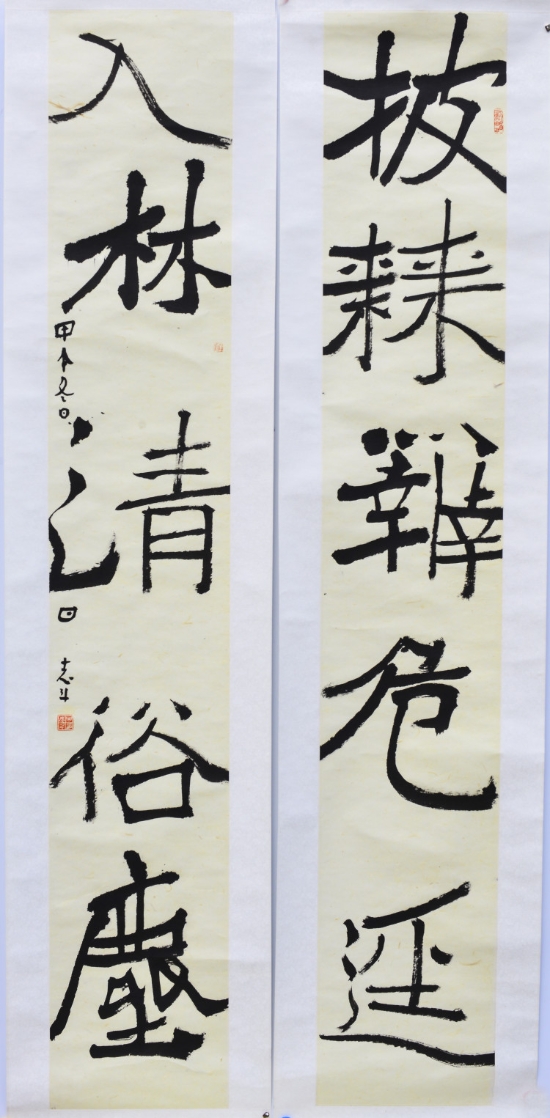 披棘辨危逕
入林清俗塵
甲午冬日
志斗